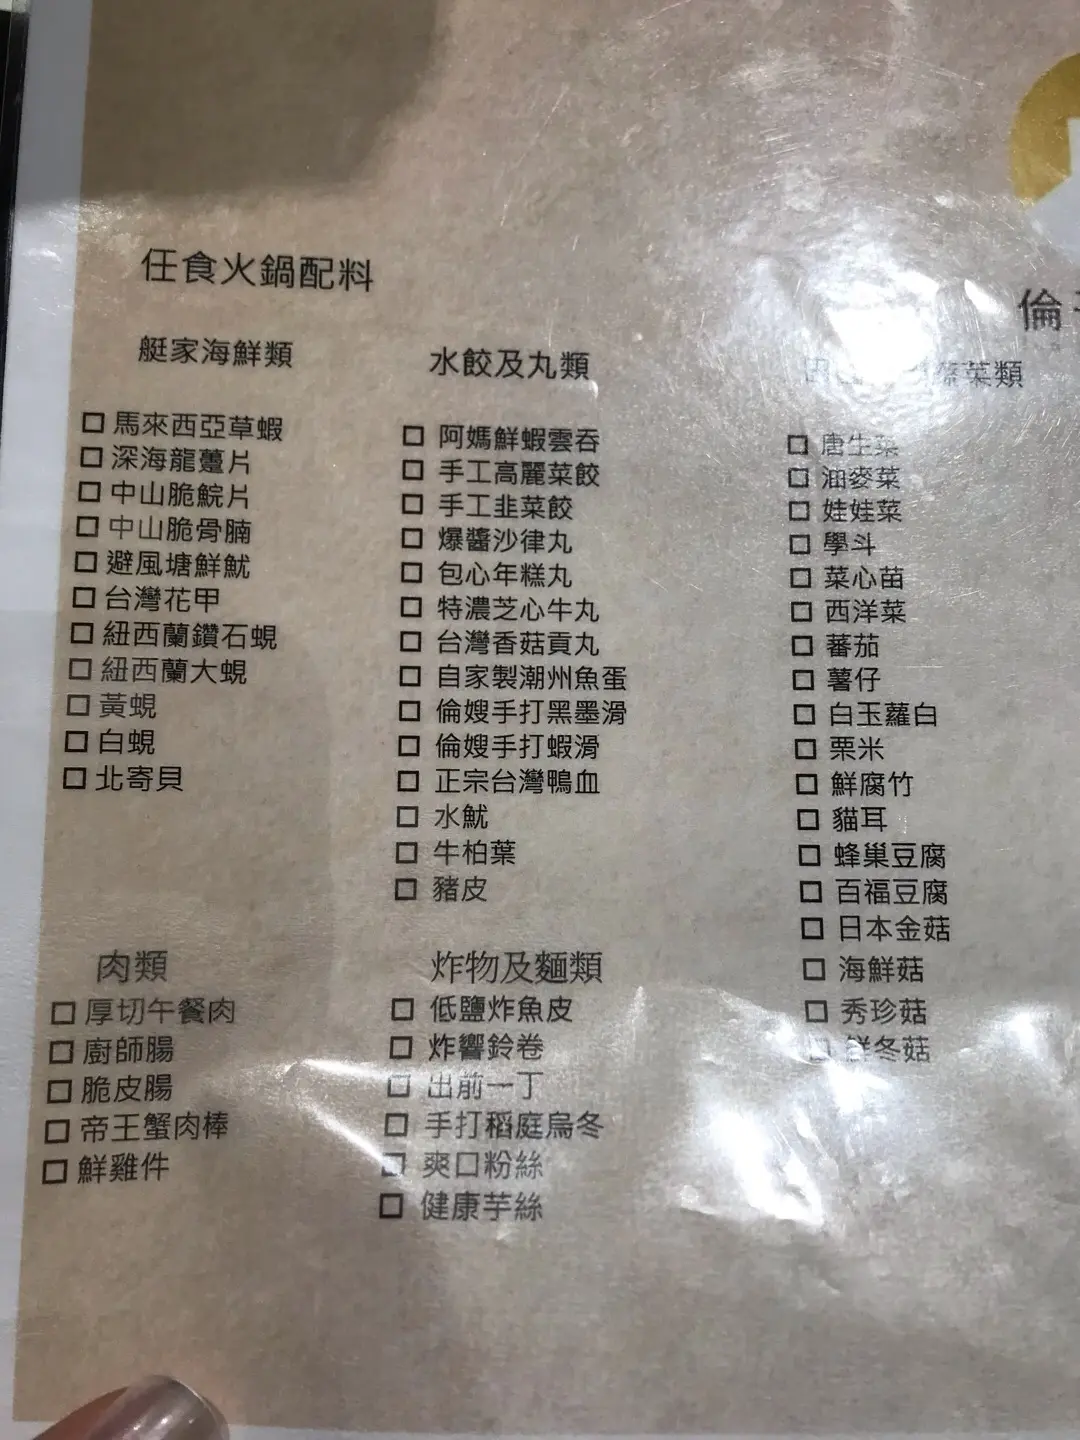 任食火鍋配料
倫
艇家海鮮類
□ 馬來西亞草蝦
□ 深海龍躉片
□ 中山脆鯇片
□ 中山脆骨腩
□ 避風塘鮮魷
□ 台灣花甲
□ 紐西蘭鑽石蜆
□ 紐西蘭大蜆
□ 黃蜆
□ 白蜆
□ 北寄貝
肉類
□ 厚切午餐肉
□ 廚師腸
□ 脆皮腸
□ 帝王蟹肉棒
□ 鮮雞件
水餃及丸類
□ 阿媽鮮蝦雲吞
□ 手工高麗菜餃
□ 手工韭菜餃
□ 爆醬沙律丸
□ 包心年糕丸
□ 特濃芝心牛丸
□ 台灣香菇貢丸
□ 自家製潮州魚蛋
□ 倫嫂手打黑墨滑
□ 倫嫂手打蝦滑
□ 正宗台灣鴨血
□ 水魷
□ 牛柏葉
□ 豬皮
炸物及麵類
□ 低鹽炸魚皮
□ 炸響鈴卷
□ 出前一丁
□ 手打稻庭烏冬
□ 爽口粉絲
□ 健康芋絲
蔬菜類
□ 唐生菜
□ 油麥菜
□ 娃娃菜
□ 學斗
□ 菜心苗
□ 西洋菜
□ 蕃茄
□ 薯仔
□ 白玉蘿白
□ 栗米
□ 鮮腐竹
□ 貓耳
□ 蜂巢豆腐
□ 百福豆腐
□ 日本金菇
□ 海鮮菇
□ 秀珍菇
□ 鮮冬菇